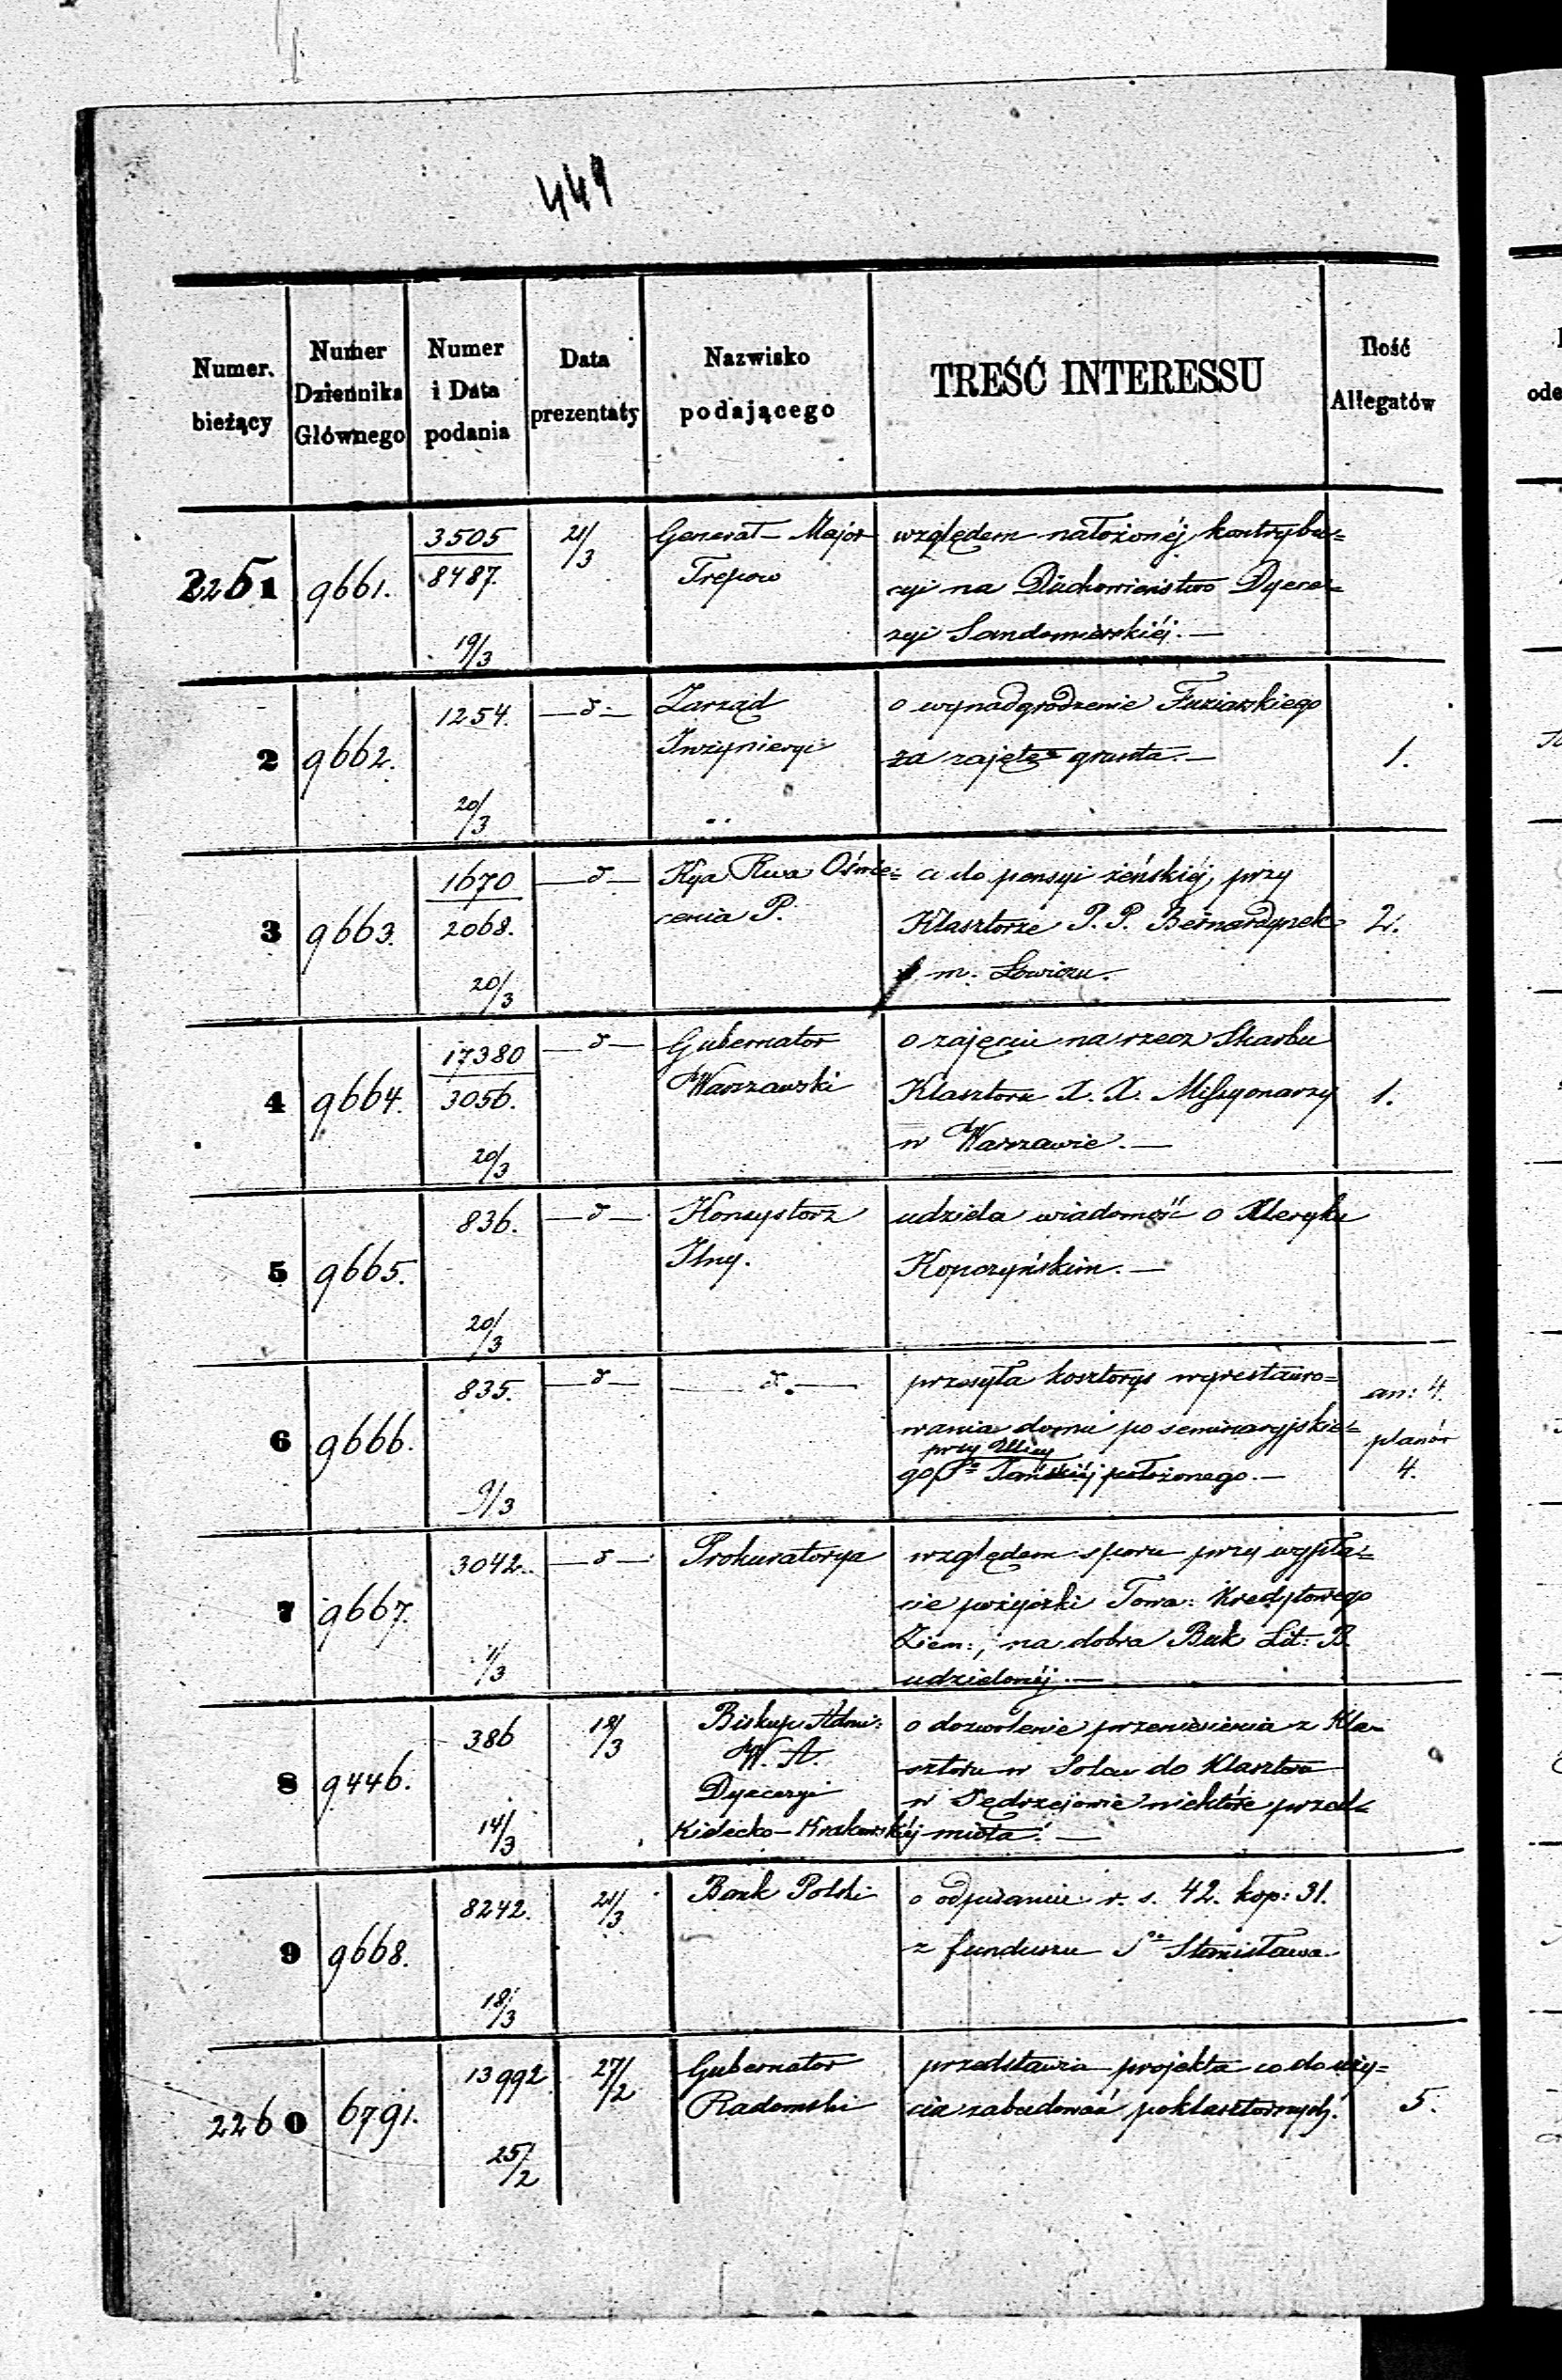 449
Numer. bieżący | Numer Dziennika Głównego | Numer i Data podania | Data prezentaty | Nazwisko podającego | TREŚĆ INTERESSU | Ilość Allegatów
2251 | 9661. | 3505 | 21/3 | Generał-Major | względem nałożonéj kontrybu=
8487. | Trepow | cyi na Duchowieństwo Dyece=
19/3 | zyi Sandomierskiéj.—
2 | 9662. | 1254. | —d:— | Zarząd | o wynadgrodzenie
Inżynieryi | za zajęte grunta.— | 1.
20/3
3 | 9663. | 1670 | —d— | Kya Rwa Oświe= | co do pensyi żeńskiéj, przy
2068. | cenia P. | Klasztorze P. P. Bernardynek | 2.
20/3 | m. Łowiczu.
4 | 9664. | 17380 | —d— | Gubernator | o zajęciu na rzecz Skarbu
3056. | Warszawski | Klasztoru X. X. Missyonarzy | 1.
20/3 | w Warszawie.—
5 | 9665. | 836. | —d— | Konsystorz | udziela wiadomość o Kleryku
Jlny. | Kopczyńskim.—
20/3
6 | 9666. | 835. | —d— | —d.— | przesyła kosztorys wyrestauro= | an: 4.
wania domu po seminaryjskie= | planów
przy Ulicy
go Sto Jańskiéj położonego.— | 4.
9/3
7 | 9667. | 3042. | —d— | Prokuratorya | względem sporu przy wypła=
cie pożyczki Towa: Kredytowego
Ziem:, na dobra Buk Lit: B.
11/3 | udzielonéj.—
8 | 9446. | 386 | 18/3 | Biskup Admi: | o dozwolenie przeniesienia z Kla-
W. A. | sztoru w Solcu do Klasztoru
Dyecezyi | w Jędrzejowie niektóre przed=
14/3 | Kielecko-Krakowskiéj | miota.—
9 | 9668. | 8242. | 21/3 | Bank Polski | o odpisanie r. s. 42. kop: 31.
z funduszu Sgo Stanisława.
18/3
2260 | 6791. | 13992 | 27/2 | Gubernator | przedstawia projekta co do uży=
Radomski | cia zabudowań poklasztornych. | 5.
25/2